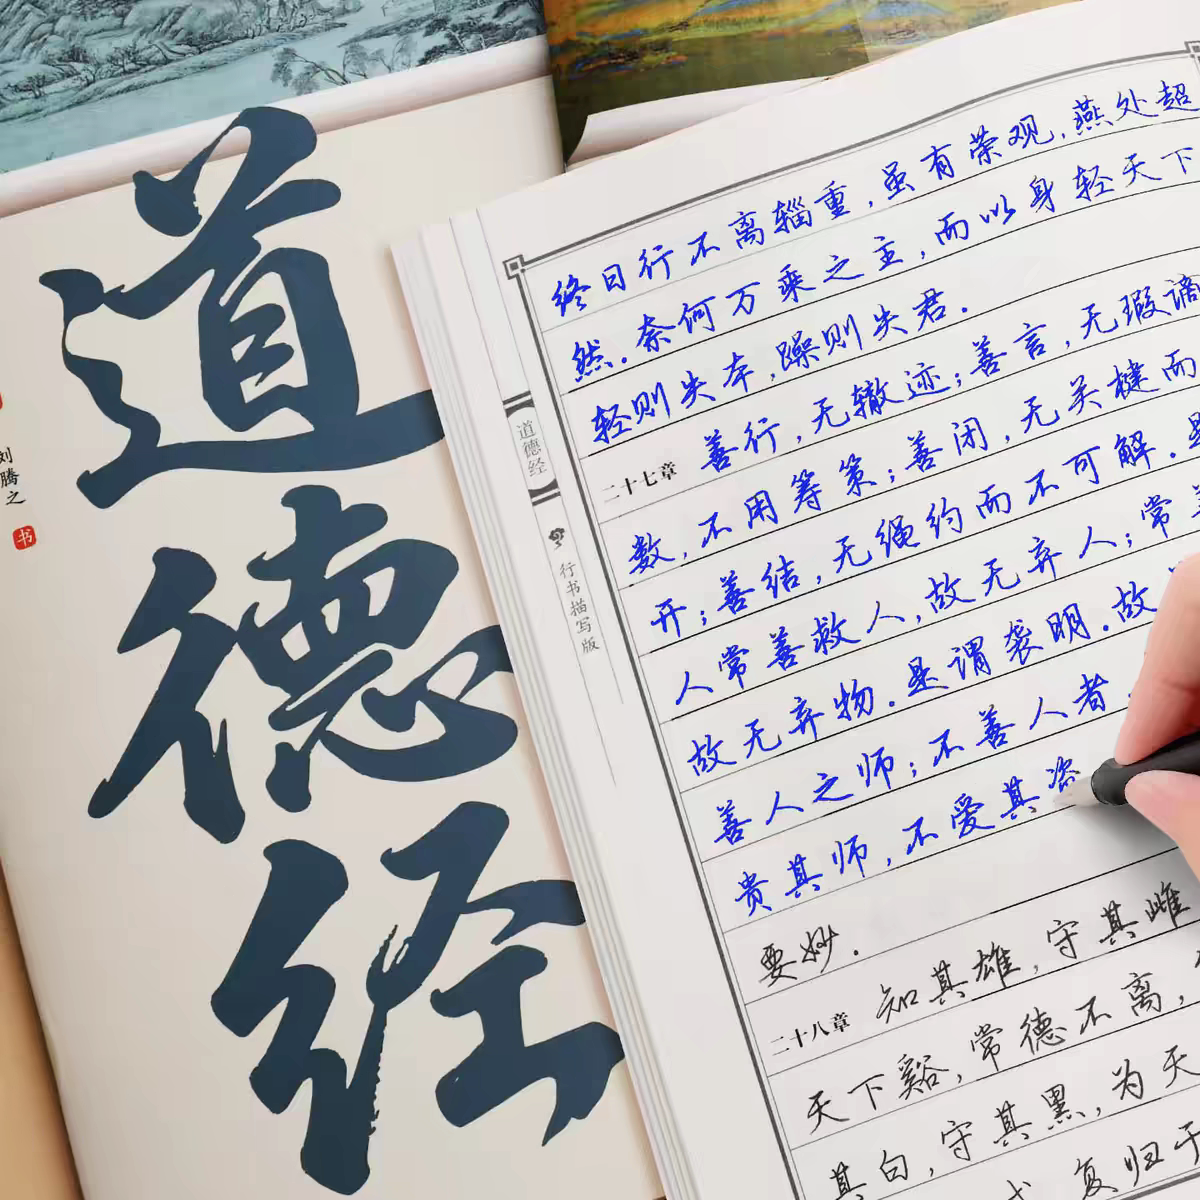 道德经
刘腾之
书
道德经
行书描写版
终日行不离辎重,虽有荣观,燕处超
然.奈何万乘之主,而以身轻天下
轻则失本,躁则失君.
二十七章 善行,无辙迹;善言,无瑕谪
数,不用筹策;善闭,无关楗而
开;善结,无绳约而不可解.是
人常善救人,故无弃人;常善
故无弃物.是谓袭明.故
善人之师;不善人者
贵其师,不爱其资
要妙.
二十八章 知其雄,守其雌
天下谿,常德不离,
其白,守其黑,为天
复归于